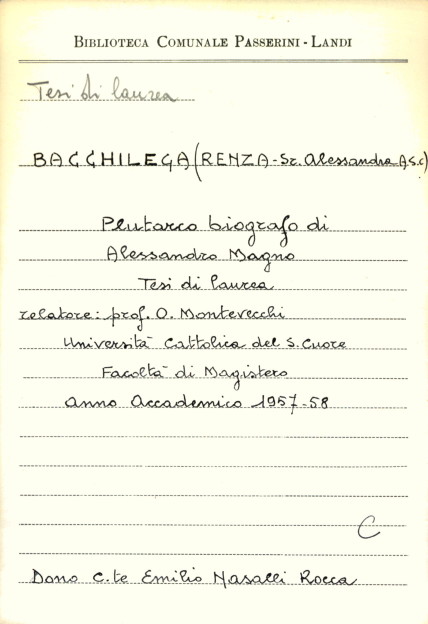 BIBLIOTECA COMUNALE PASSERINI - LANDI
Tesi di laurea
BACCHILEGA (RENZA - Sr. Alessandra A.S.C)
Plutarco biografo di
Alessandro Magno
Tesi di laurea
relatore: prof. O. Montevecchi
Università Cattolica del S. Cuore
Facoltà di Magistero
anno Accademico 1957-58
C
Dono C.te Emilio Nasalli Rocca